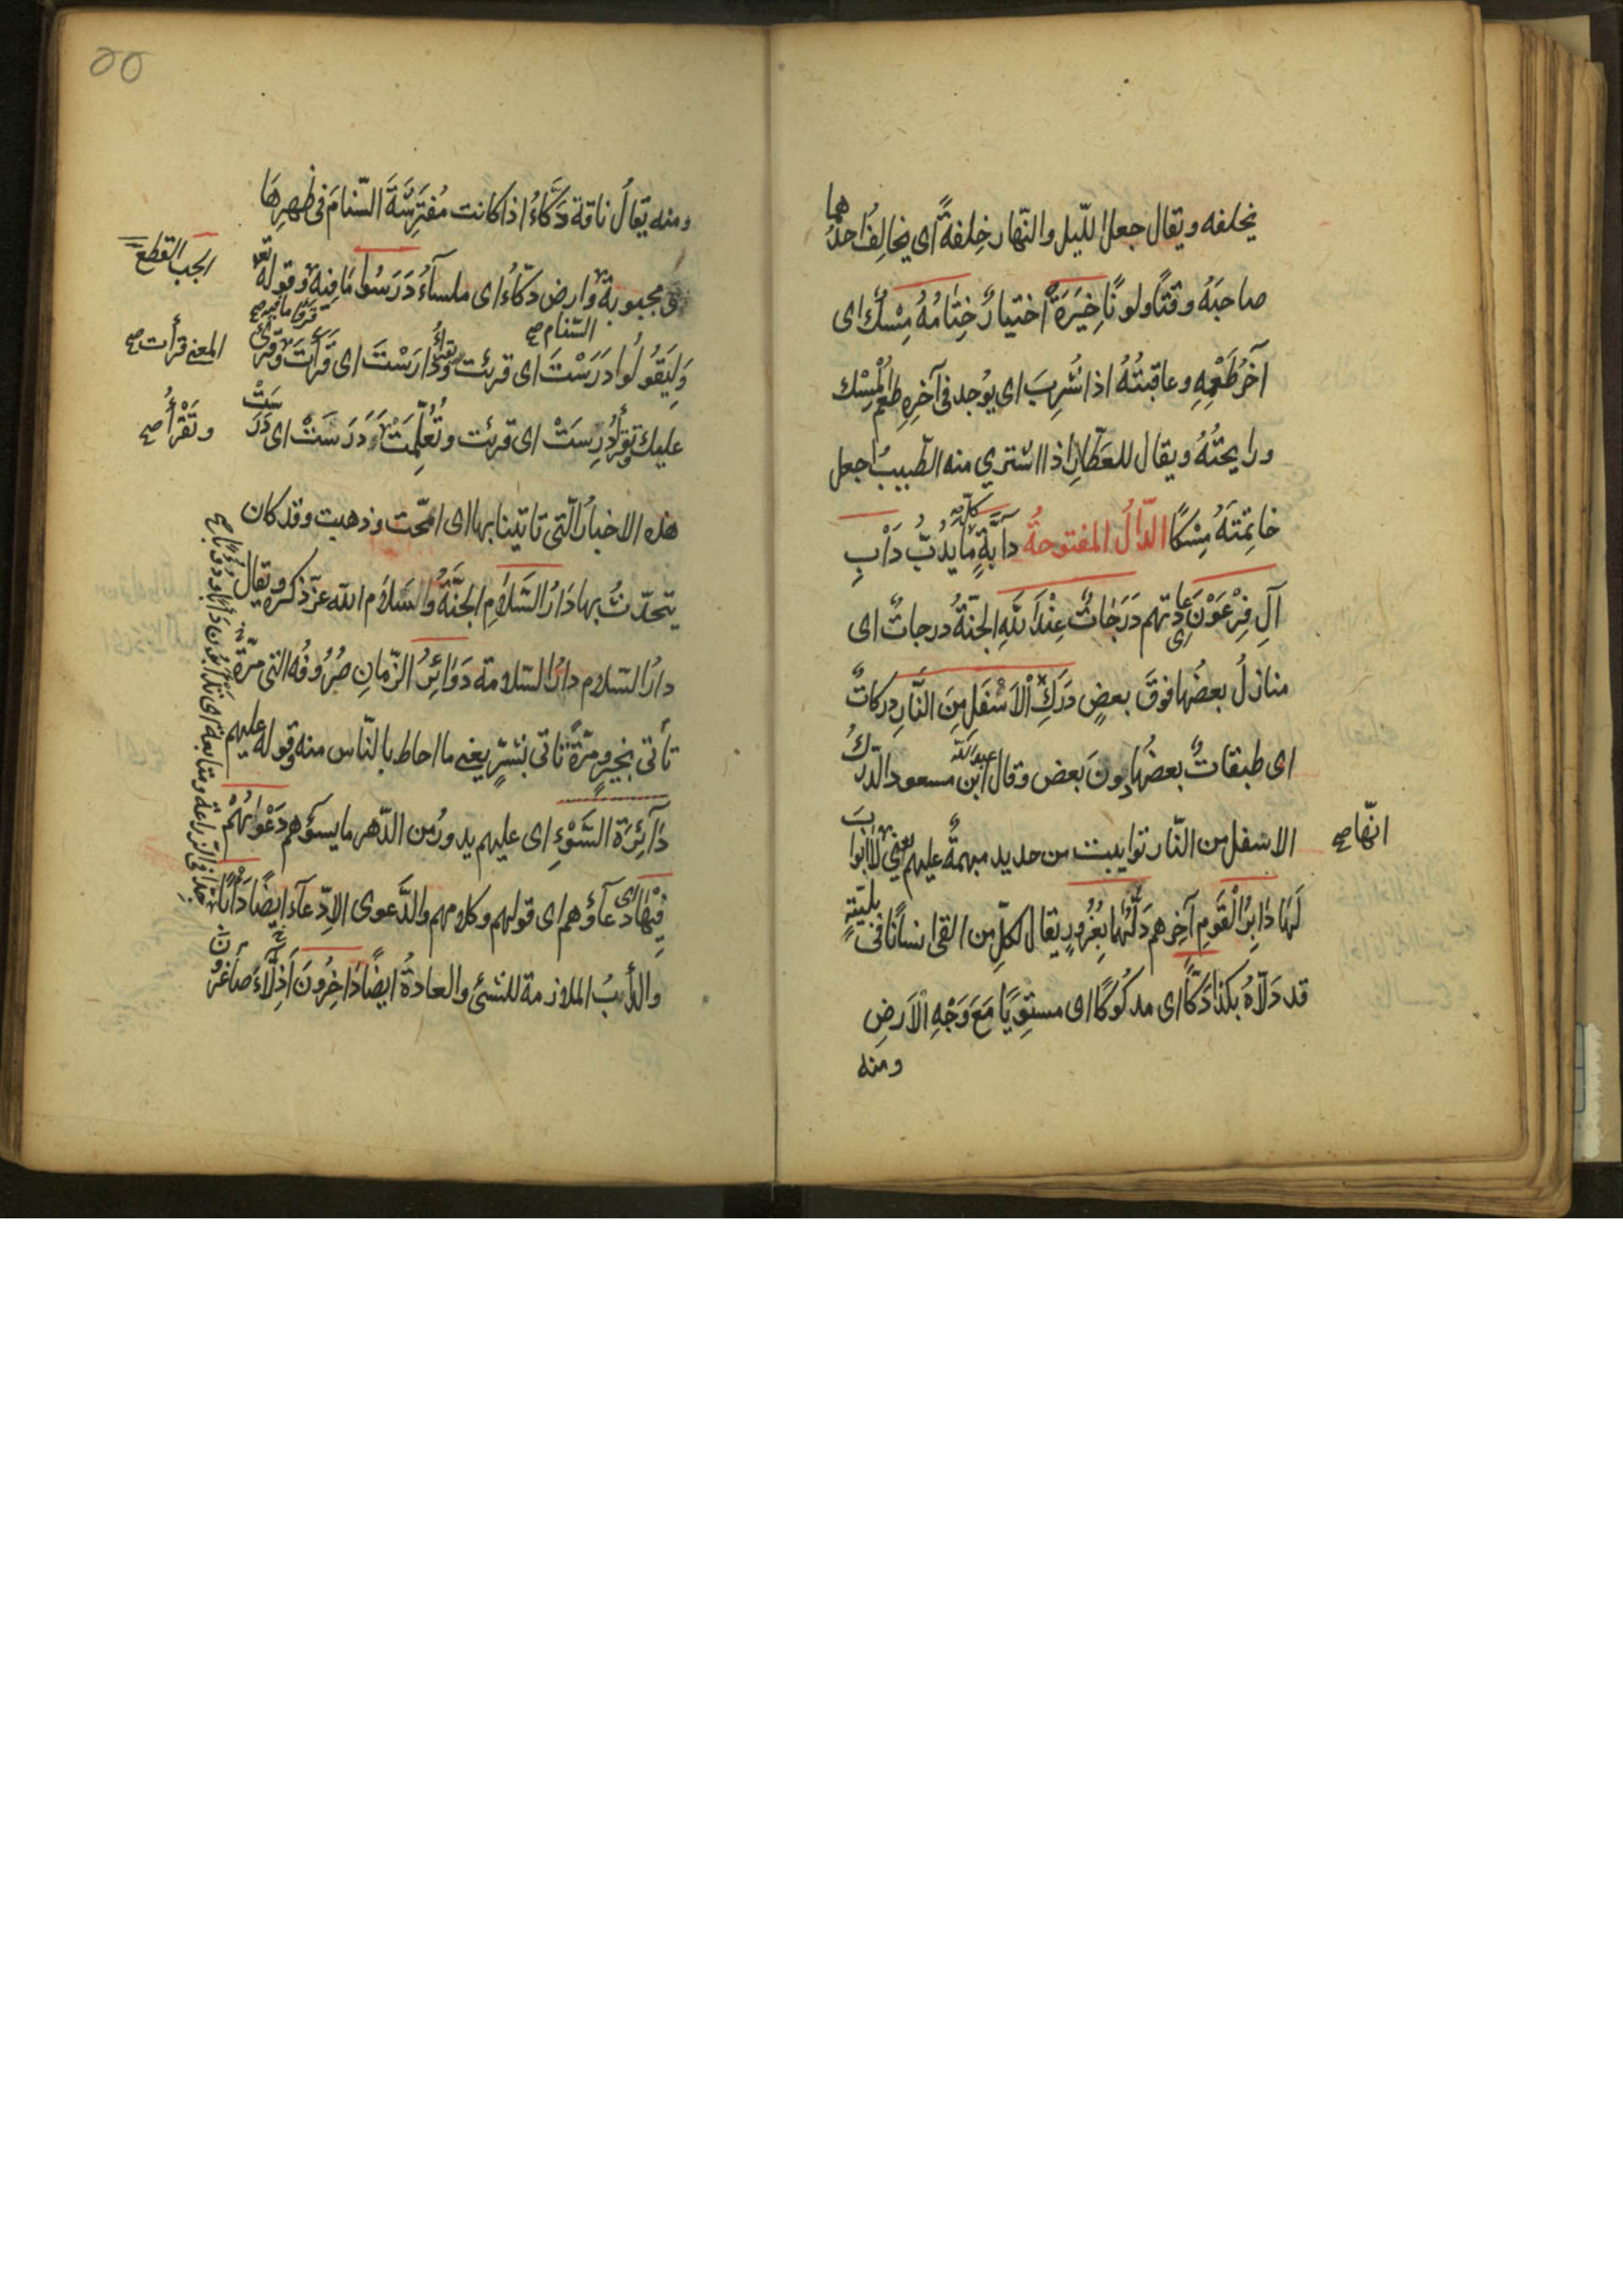 يخلفه ويقال جعل الليل والنّهار خِلفةً اى يخالِفُ احدُهما
صاحبَهُ وقتًا ولونًا خِيَرَةٌ اختيارٌ خِتَامُهُ مِسْكٌ اى
آخرُ طَعْمِهِ وعاقبتُهُ اذا شُرِبَ اى يُوجد فى آخرِهِ طعْمُ الْمِسْك
ورايحتُهُ ويقال للعَطّارِ اذا اشترى منه الطّيب اجعل
خاتِمَتَهُ مِسْكًا الدّالُ المفتوحةُ دآبَّةٍ كلّ ما يَدُبُّ دَأْبِ
آلِ فِرْعَوْنَ اى عادتهم دَرَجَاتٌ عِنْدَ اللّهِ الجنّةُ درجاتٌ اى
منازلُ بعضُها فوقَ بعضٍ دَرَكِ الْاَسْفَلِ مِنَ النَّارِ دركاتٌ
اى طبقاتٌ بعضُها دونَ بعض وقال عبد اللّه ابن مسعود الدّركُ
الاسفل من النّار توابيت من حديد مبهمةٌ عليهم يعنى لا ابوابَ
انّها صح
لَهَا دَابِرُ الْقَومِ آخِرهم دَلّٰهُمَا بِغُرُورٍ يقال لكلّ من القى انسانًا فى بليّةٍ
قد دَلّاهُ بكذا دَكًّا اى مدكُوكًا اى مستوِيًا مَعَ وَجْهِ الْاَرضِ
ومنه
ومنه يقالُ ناقة دَكَّاءُ اذا كانت مُفتَرِشَةَ السّنام فى ظهرِها
الجب القطع
مجبوبة وارض دكّاءُ اى ملسآءُ دَرَسُوا مَا فِيهِ وقوله تعه
السّنام صح
قرؤا ما فيه صح
وَلِيَقُولُوا دَرَسْتَ اى قرئت وتقرأُ دارَسْتَ اى قَرأتَ وقُرئ
المعنى قرأت صح
عليك وتقرأ دُرِسَتْ اى قرئت وتُعُلِّمَتْ دَرَسَتْ اى دَرَسَتْ
وتَقْرأُ صح
هذه الاخبارُ الّتى تاتينا بها اى امّحت وذهبت وقد كان
يتحدّثُ بها دَارُ السَّلَامِ الجنَّةُ والسَلامُ الله عزّ ذكره ويقال
دارُ السّلام دارُ السّلامة دَوَائِرُ الزّمانِ صُرُوفُه التى مرّةً
تأتى بخيرٍ ومرّةً تاتى بشَرٍّ يعنى ما احاط بالنّاس منه وقوله عليهم
دَآئِرَةُ السَّوْءِ اى عليهم يدورُ من الدّهر ما يسؤهم دَعْوٰيهُمْ
فِيهَا اى دعآؤهم اى قولهم وكلامهم والدَّعوى الاِدّعآءُ ايضًا دَأَبًا
والدّأبُ الملازمة للشئ والعادةُ ايضًا دَاخِرُونَ اَذِلّآءَ صاغرُون